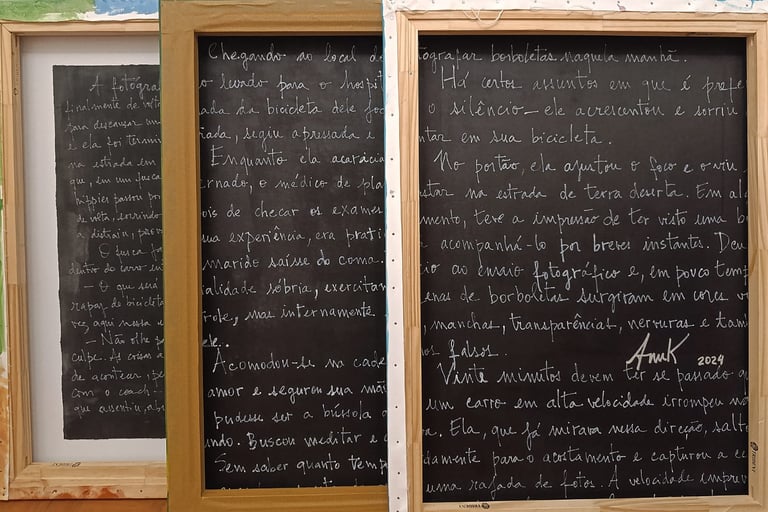 A fotógra
finalmente de
para descansar um
e ela foi
na estrada em
que, em um fusca
hippies passou por
de volta, sorrindo
a distrair,
O fusca
dentro do carro
— O que será
rapaz de bicicleta
vez aqui nessa
— Não olhe
culpe. As coisas
de acontecer,
com o coach—
que assentiu,
Chegando ao local d
o levado para o hospit
ada da bicicleta dele foc
iada, seguiu apressada e
Enquanto ela acaricia
ernado, o médico de pla
ois de checar os exames
ua experiência, era prati
marido saísse do coma.
ialidade sóbria, exercitan
role, mas internamente
ele..
Acomodou-se na cade
amor e segurou sua mão
pudesse ser a bússola
undo. Buscou meditar e
Sem saber quanto temp
tografar borboletas naquela manhã.
Há certos assuntos em que é prefe
o silêncio— ele acrescentou e sorriu
ntar em sua bicicleta.
No portão, ela ajustou o foco e o viu
star na estrada de terra deserta. Em al
mento, teve a impressão de ter visto uma b
acompanhá-lo por breves instantes. Deu
io ao ensaio fotográfico e, em pouco temp
enas de borboletas surgiram em cores v
, manchas, transparências, nervuras e tam
os falsos..
Anuk 2024
Vinte minutos devem ter se passado q
um carro em alta velocidade irrompeu na
a. Ela, que já mirava nessa direção, salto
idamente para o acostamento e capturou a ce
uma rajada de fotos. A velocidade imprev